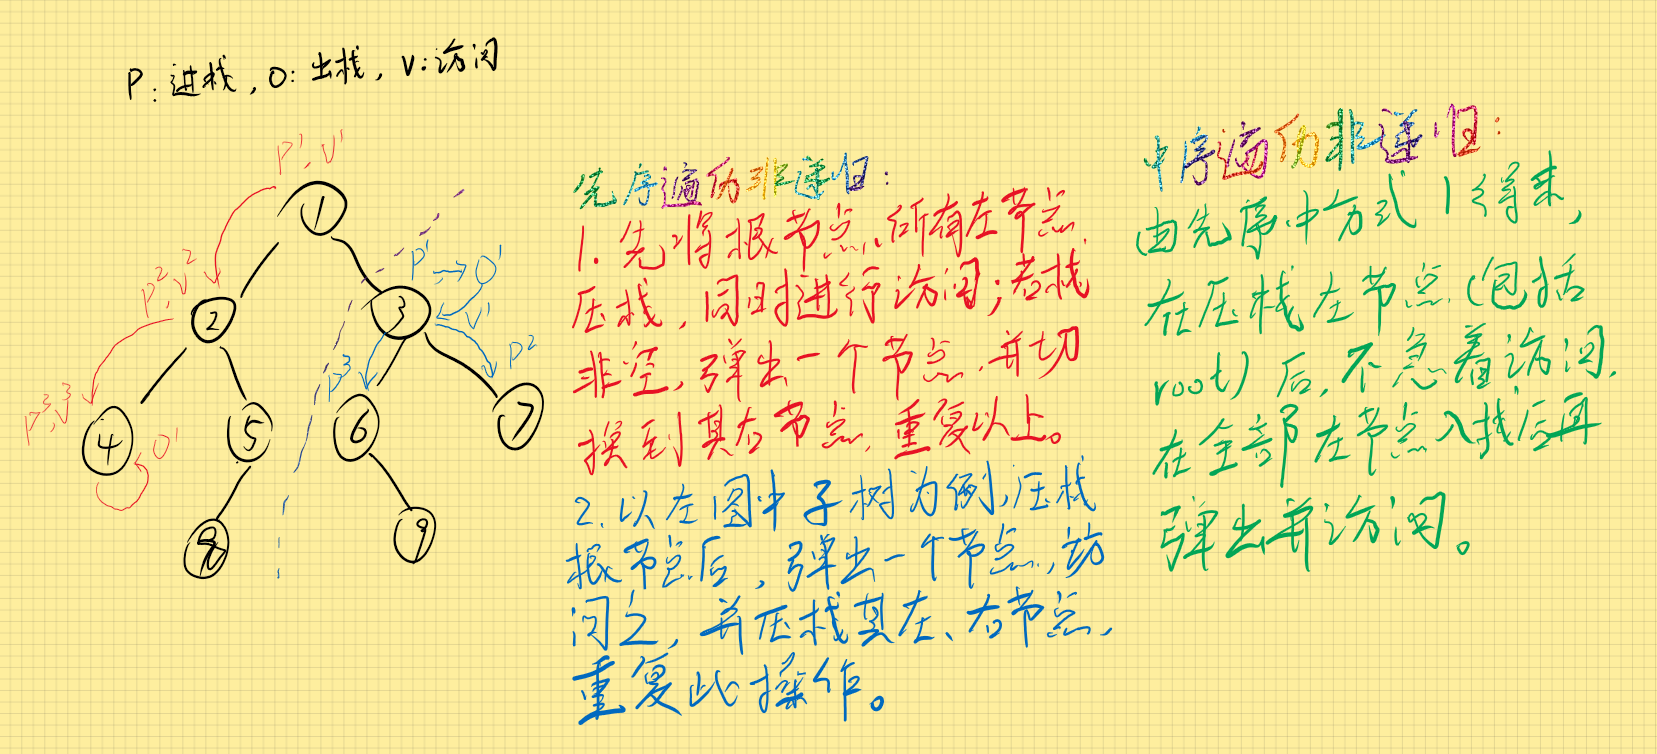 P:进栈,O:出栈,V:访问
P¹,V¹
1
P²,V²
2
P³,V³
4
O¹
5
8
P¹→O¹
3
V¹
P²
P³
6
7
9
先序遍历非递归:
1.先将根节点、所有左节点
压栈,同时进行访问;若栈
非空,弹出一个节点,并切
换到其右节点,重复以上。
2.以左图中子树为例,压栈
根节点后,弹出一个节点,访
问之,并压栈其左、右节点,
重复此操作。
中序遍历非递归:
由先序中方式1得来,
在压栈左节点(包括
root)后,不急着访问,
在全部左节点入栈后再
弹出并访问。